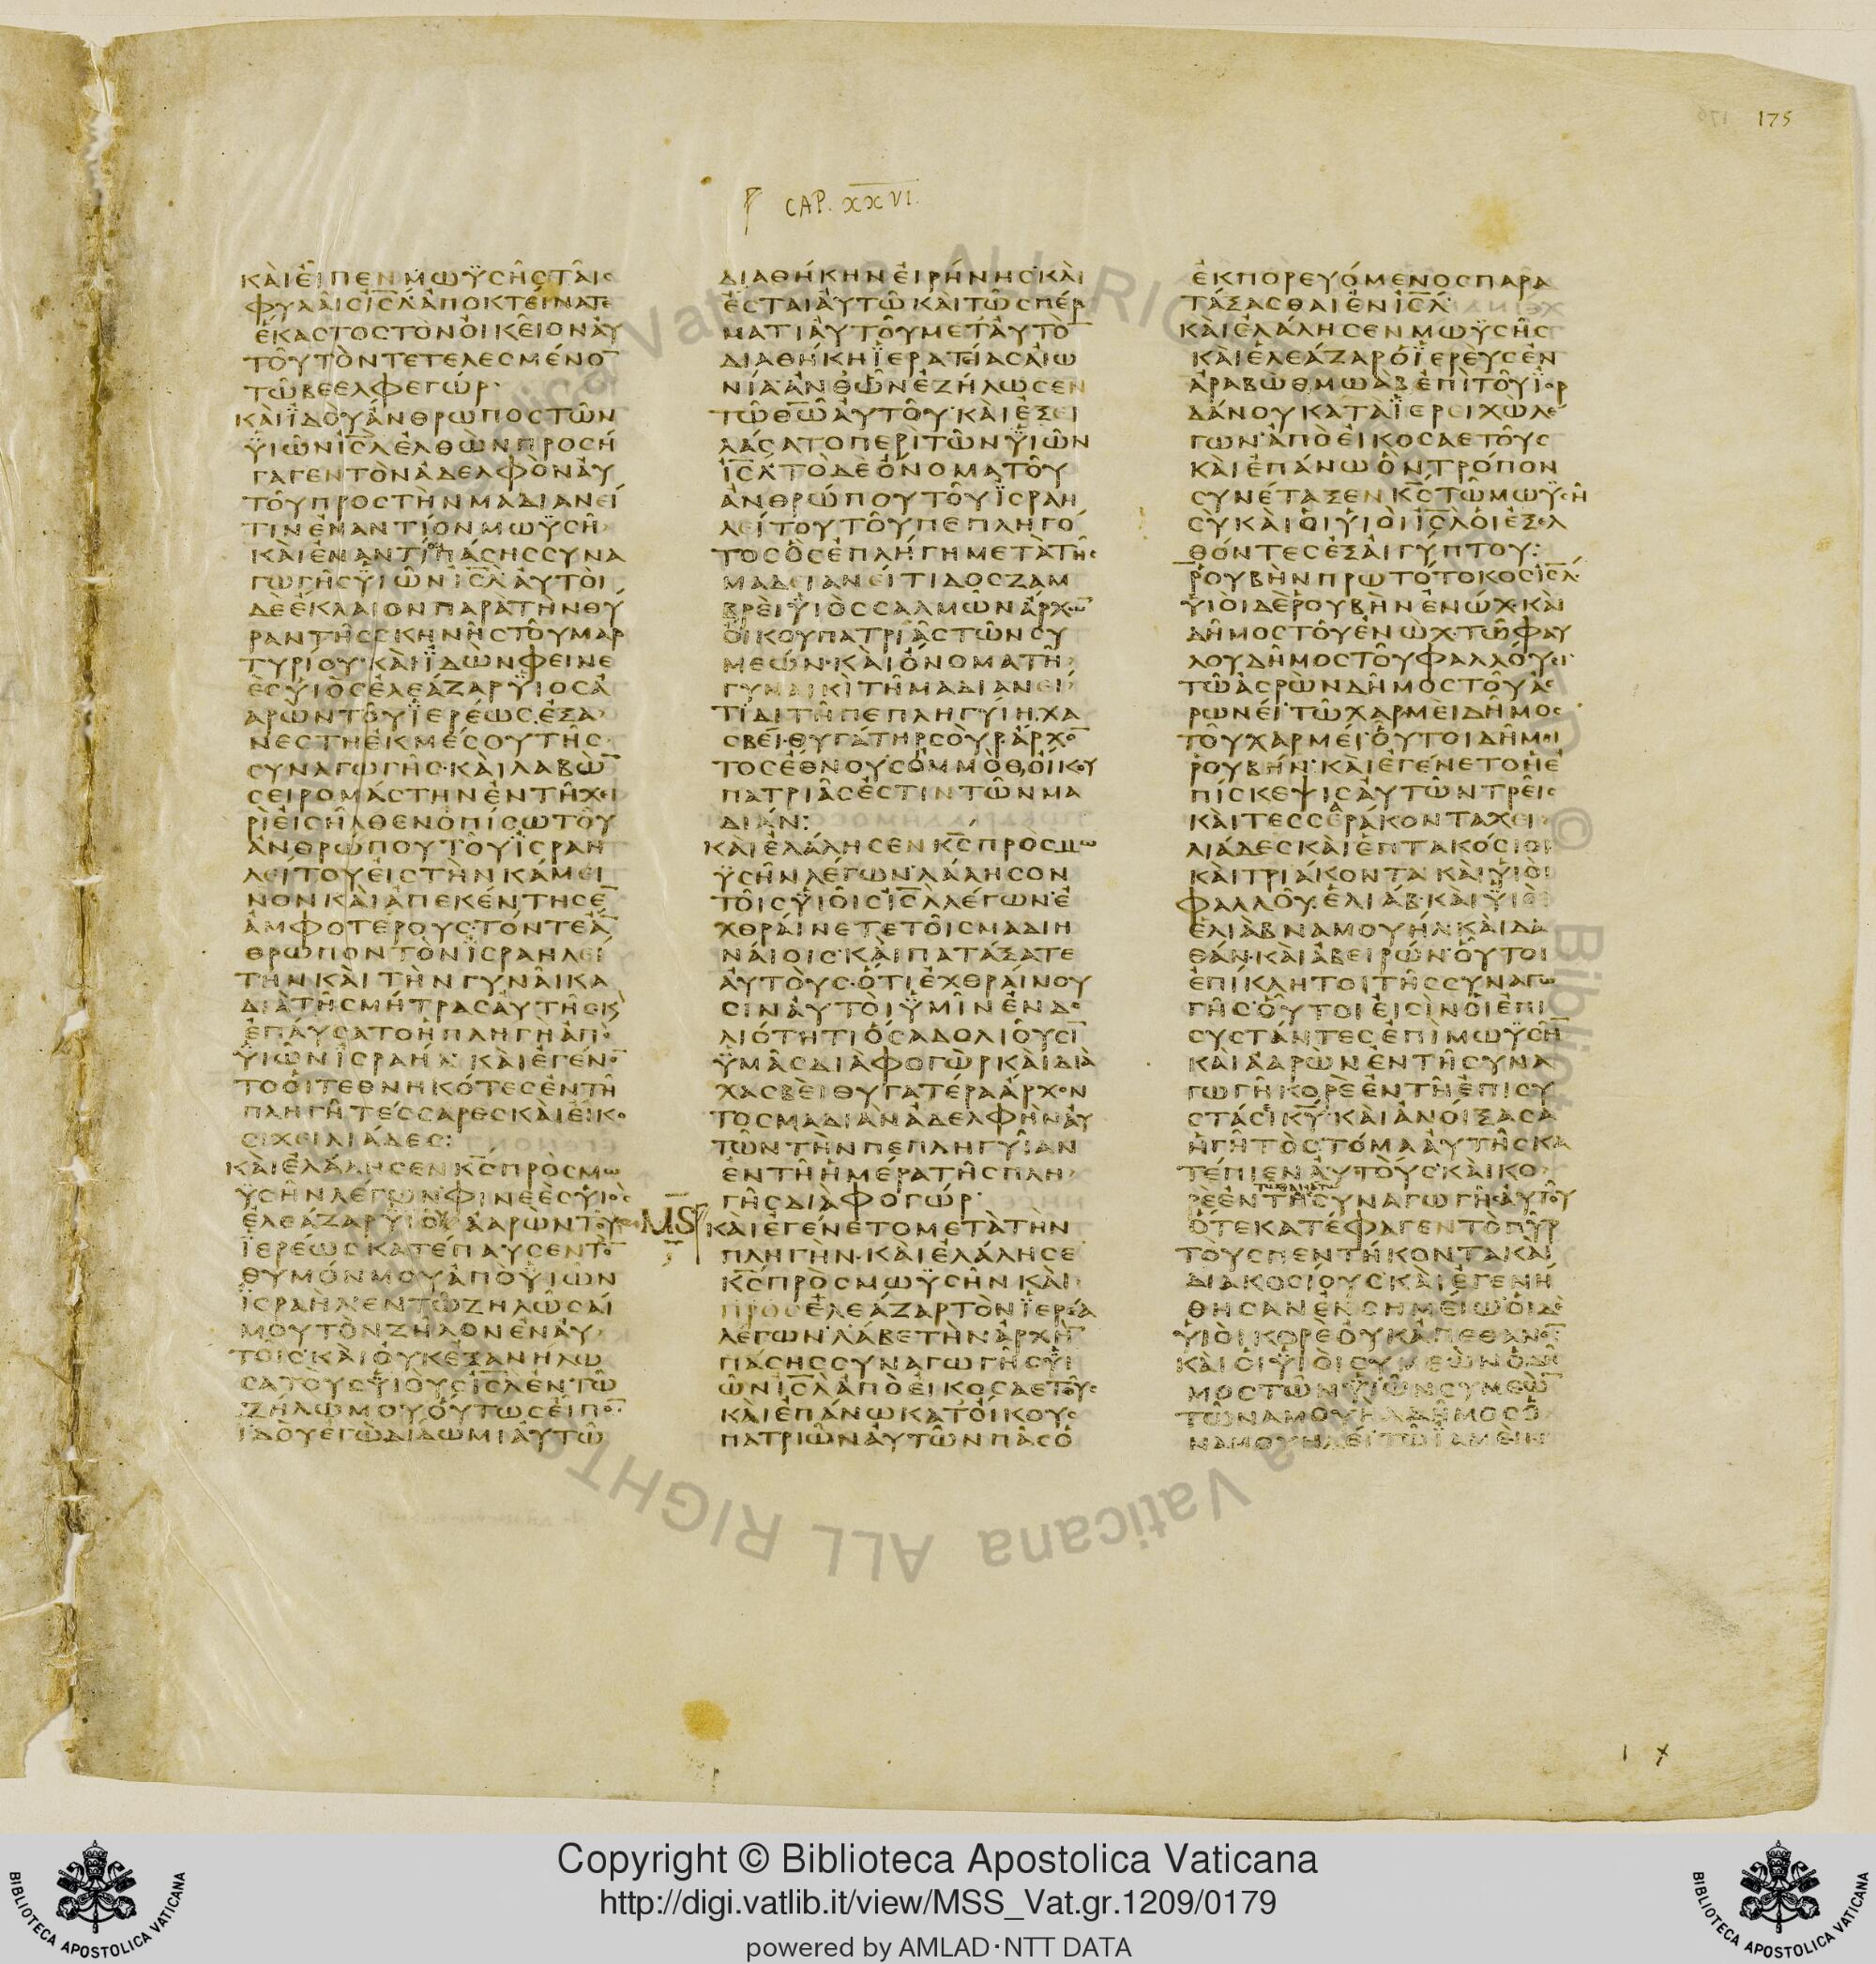 175
CAP. XXVI.
ΚΑΙΕΙΠΕΝΜΩΫΣΗΣΤΑΙΣ
ΦΥΛΑΙΣΙΣΛΑΠΟΚΤΕΙΝΑΤΕ
ΕΚΑΣΤΟΣΤΟΝΟΙΚΕΙΟΝΑΥ
ΤΟΥΤΟΝΤΕΤΕΛΕΣΜΕΝΟ
ΤΩΒΕΕΛΦΕΓΩΡ·
ΚΑΙΪΔΟΥΑΝΘΡΩΠΟΣΤΩΝ
ΫΙΩΝΙΣΛΕΛΘΩΝΠΡΟΣΗ
ΓΑΓΕΝΤΟΝΑΔΕΛΦΟΝΑΥ
ΤΟΥΠΡΟΣΤΗΝΜΑΔΙΑΝΕΙ
ΤΙΝΕΝΑΝΤΙΟΝΜΩΫΣΗ
ΚΑΙΕΝΑΝΤΙΟΝΠΑΣΗΣΣΥΝΑ
ΓΩΓΗΣΫΙΩΝΙΣΛΑΥΤΟΙ
ΔΕΕΚΛΑΙΟΝΠΑΡΑΤΗΝΘΥ
ΡΑΝΤΗΣΣΚΗΝΗΣΤΟΥΜΑΡ
ΤΥΡΙΟΥ·ΚΑΙΪΔΩΝΦΕΙΝΕ
ΕΣΥΙΟΣΕΛΕΑΖΑΡΫΙΟΣΑ
ΑΡΩΝΤΟΥΪΕΡΕΩΣ·ΕΞΑ
ΝΕΣΤΗΕΚΜΕΣΟΥΤΗΣ
ΣΥΝΑΓΩΓΗΣ·ΚΑΙΛΑΒΩ
ΣΕΙΡΟΜΑΣΤΗΝΕΝΤΗΧΕΙ
ΡΙΕΙΣΗΛΘΕΝΟΠΙΣΩΤΟΥ
ΑΝΘΡΩΠΟΥΤΟΥΙΣΡΑΗ
ΛΕΙΤΟΥΕΙΣΤΗΝΚΑΜΕΙ
ΝΟΝΚΑΙΑΠΕΚΕΝΤΗΣΕ
ΑΜΦΟΤΕΡΟΥΣ·ΤΟΝΤΕΑ
ΘΡΩΠΟΝΤΟΝΙΣΡΑΗΛΕΙ
ΤΗΝΚΑΙΤΗΝΓΥΝΑΙΚΑ
ΔΙΑΤΗΣΜΗΤΡΑΣΑΥΤΗΣΚ
ΕΠΑΥΣΑΤΟΗΠΛΗΓΗΑΠΟ
ΫΙΩΝΙΣΡΑΗΛ·ΚΑΙΕΓΕΝΟ
ΤΟΟΙΤΕΘΝΗΚΟΤΕΣΕΝΤΗ
ΠΛΗΓΗΤΕΣΣΑΡΕΣΚΑΙΕΙΚΟ
ΣΙΧΕΙΛΙΑΔΕΣ:
ΚΑΙΕΛΑΛΗΣΕΝΚΣΠΡΟΣΜΩ
ΫΣΗΝΛΕΓΩΝ·ΦΙΝΕΕΣΥΙΟΣ
ΕΛΕΑΖΑΡΥΙΟΥΑΑΡΩΝΤΟΥ
ΪΕΡΕΩΣΚΑΤΕΠΑΥΣΕΝΤΟ
ΘΥΜΟΝΜΟΥΑΠΟΫΙΩΝ
ΪΣΡΑΗΛΕΝΤΩΖΗΛΩΣΑΙ
ΜΟΥΤΟΝΖΗΛΟΝΕΝΑΥ
ΤΟΙΣ·ΚΑΙΟΥΚΕΞΑΝΗΛΩ
ΣΑΤΟΥΣΫΙΟΥΣΙΣΛΕΝΤΩ
ΖΗΛΩΜΟΥΟΥΤΩΣΕΙΠΟ
ΙΔΟΥΕΓΩΔΙΔΩΜΙΑΥΤΩ
ΔΙΑΘΗΚΗΝΕΙΡΗΝΗΣ·ΚΑΙ
ΕΣΤΑΙΑΥΤΩΚΑΙΤΩΣΠΕΡ
ΜΑΤΙΑΥΤΟΥΜΕΤΑΥΤΟ
ΔΙΑΘΗΚΗΪΕΡΑΤΕΙΑΣΑΙΩ
ΝΙΑ·ΑΝΘΩΝΕΖΗΛΩΣΕΝ
ΤΩΘΩΑΥΤΟΥ·ΚΑΙΕΞΕΙ
ΛΑΣΑΤΟΠΕΡΙΤΩΝΫΙΩΝ
ΙΣΛ·ΤΟΔΕΟΝΟΜΑΤΟΥ
ΑΝΘΡΩΠΟΥΤΟΥΪΣΡΑΗ
ΛΕΙΤΟΥΤΟΥΠΕΠΛΗΓΟ
ΤΟΣΟΣΕΠΛΗΓΗΜΕΤΑΤΗΣ
ΜΑΔΕΙΑΝΕΙΤΙΔΟΣΖΑΜ
ΒΡΕΙΫΙΟΣΣΑΛΜΩΝΑΡΧΩ
ΟΙΚΟΥΠΑΤΡΙΑΣΤΩΝΣΥ
ΜΕΩΝ·ΚΑΙΟΝΟΜΑΤΗ
ΓΥΝΑΙΚΙΤΗΜΑΔΙΑΝΕΙ
ΤΙΔΙΤΗΠΕΠΛΗΓΥΙΗ·ΧΑ
ΣΒΕΙ·ΘΥΓΑΤΗΡΣΟΥΡ·ΑΡΧΟ
ΤΟΣΕΘΝΟΥΣΟΜΜΟΘ,ΟΙΚΟΥ
ΠΑΤΡΙΑΣΕΣΤΙΝΤΩΝΜΑ
ΔΙΑΝ:
ΚΑΙΕΛΑΛΗΣΕΝΚΣΠΡΟΣΜΩ
ΫΣΗΝΛΕΓΩΝ·ΛΑΛΗΣΟΝ
ΤΟΙΣΫΙΟΙΣΙΣΛΛΕΓΩΝ·Ε
ΧΘΡΑΙΝΕΤΕΤΟΙΣΜΑΔΙΗ
ΝΑΙΟΙΣ·ΚΑΙΠΑΤΑΞΑΤΕ
ΑΥΤΟΥΣ·ΟΤΙΕΧΘΡΑΙΝΟΥ
ΣΙΝΑΥΤΟΙΫΜΙΝΕΝΔΟ
ΛΙΟΤΗΤΙΟΣΑΔΟΛΙΟΥΣΙ
ΫΜΑΣΔΙΑΦΟΓΩΡΚΑΙΔΙΑ
ΧΑΣΒΕΙΘΥΓΑΤΕΡΑΑΡΧΟΝ
ΤΟΣΜΑΔΙΑΝΑΔΕΛΦΗΝΑΥ
ΤΩΝ·ΤΗΝΠΕΠΛΗΓΥΙΑΝ
ΕΝΤΗΗΜΕΡΑΤΗΣΠΛΗ
ΓΗΣΔΙΑΦΟΓΩΡ·
ΚΑΙΕΓΕΝΕΤΟΜΕΤΑΤΗΝ
ΠΛΗΓΗΝ·ΚΑΙΕΛΑΛΗΣΕ
ΚΣΠΡΟΣΜΩΫΣΗΝΚΑΙ
ΠΡΟΣΕΛΕΑΖΑΡΤΟΝΪΕΡΕΑ
ΛΕΓΩΝ·ΛΑΒΕΤΗΝΑΡΧΗ
ΠΑΣΗΣΣΥΝΑΓΩΓΗΣΫΙ
ΩΝΙΣΛΑΠΟΕΙΚΟΣΑΕΤΟΥΣ
ΚΑΙΕΠΑΝΩΚΑΤΟΙΚΟΥΣ
ΠΑΤΡΙΩΝΑΥΤΩΝΠΑΣΟ
ΕΚΠΟΡΕΥΟΜΕΝΟΣΠΑΡΑ
ΤΑΞΑΣΘΑΙΕΝΙΣΛ·
ΚΑΙΕΛΑΛΗΣΕΝΜΩΫΣΗΣ
ΚΑΙΕΛΕΑΖΑΡΟΪΕΡΕΥΣΕΝ
ΑΡΑΒΩΘΜΩΑΒΕΠΙΤΟΥΪΟΡ
ΔΑΝΟΥΚΑΤΑΪΕΡΕΙΧΩΛΕ
ΓΩΝ·ΑΠΟΕΙΚΟΣΑΕΤΟΥΣ
ΚΑΙΕΠΑΝΩΟΝΤΡΟΠΟΝ
ΣΥΝΕΤΑΞΕΝΚΣΤΩΜΩΫΣΗ
ΣΥΚΑΙΟΙΥΙΟΙΙΣΛΟΙΕΞΕΛ
ΘΟΝΤΕΣΕΞΑΙΓΥΠΤΟΥ:
ΡΟΥΒΗΝΠΡΩΤΟΤΟΚΟΣΙΣΛ·
ΥΙΟΙΔΕΡΟΥΒΗΝΕΝΩΧ·ΚΑΙ
ΔΗΜΟΣΤΟΥΕΝΩΧ·ΤΩΦΑΛ
ΛΟΥΔΗΜΟΣΤΟΥΦΑΛΛΟΥΕΙ
ΤΩΑΣΡΩΝΔΗΜΟΣΤΟΥΑΣ
ΡΩΝΕΙ·ΤΩΧΑΡΜΕΙΔΗΜΟΣ
ΤΟΥΧΑΡΜΕΙ·ΟΥΤΟΙΔΗΜΟΙ
ΡΟΥΒΗΝ·ΚΑΙΕΓΕΝΕΤΟΗΕ
ΠΙΣΚΕΨΙΣΑΥΤΩΝΤΡΕΙΣ
ΚΑΙΤΕΣΣΕΡΑΚΟΝΤΑΧΕΙ
ΛΙΑΔΕΣΚΑΙΕΠΤΑΚΟΣΙΟΙ
ΚΑΙΤΡΙΑΚΟΝΤΑΚΑΙΥΙΟΙ
ΦΑΛΛΟΥ·ΕΛΙΑΒ·ΚΑΙΥΙΟΙ
ΕΛΙΑΒΝΑΜΟΥΗΛ·ΚΑΙΔΑ
ΘΑΝ·ΚΑΙΑΒΕΙΡΩΝ·ΟΥΤΟΙ
ΕΠΙΚΛΗΤΟΙΤΗΣΣΥΝΑΓΩ
ΓΗΣ·ΟΥΤΟΙΕΙΣΙΝΟΙΕΠΙ
ΣΥΣΤΑΝΤΕΣΕΠΙΜΩΫΣΗ
ΚΑΙΑΑΡΩΝΕΝΤΗΣΥΝΑ
ΓΩΓΗΚΟΡΕΕΝΤΗΕΠΙΣΥ
ΣΤΑΣΙΚΥ·ΚΑΙΑΝΟΙΞΑΣΑ
ΗΓΗΤΟΣΤΟΜΑΑΥΤΗΣΚΑ
ΤΕΠΙΕΝΑΥΤΟΥΣ·ΚΑΙΚΟ
ΡΕΕΝΤΗΣΥΝΑΓΩΓΗΑΥΤΟΥ
ΟΤΕΚΑΤΕΦΑΓΕΝΤΟΠΥΡ
ΤΟΥΣΠΕΝΤΗΚΟΝΤΑΚΑΙ
ΔΙΑΚΟΣΙΟΥΣ·ΚΑΙΕΓΕΝΗ
ΘΗΣΑΝΕΝΣΗΜΕΙΩ·ΟΙΔΕ
ΥΙΟΙΚΟΡΕΟΥΚΑΠΕΘΑΝΟ
ΚΑΙΟΙΫΙΟΙΣΥΜΕΩΝΟΔΗ
ΜΟΣΤΩΝΫΙΩΝΣΥΜΕΩ
ΤΩΝΑΜΟΥΗΛΔΗΜΟΣΟ
ΝΑΜΟΥΗΛΕΙ·ΤΩΪΑΜΕΙΝ
Copyright © Biblioteca Apostolica Vaticana
http://digi.vatlib.it/view/MSS_Vat.gr.1209/0179
powered by AMLAD·NTT DATA
BIBLIOTECA APOSTOLICA VATICANA
BIBLIOTECA APOSTOLICA VATICANA